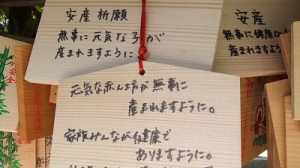 安産祈願
無事に元気な子が
産まれますように。
安産
無事に健康な
産まれますように
元気な赤ん坊が無事に
産まれますように。
家族みんなが健康で
ありますように。
安全